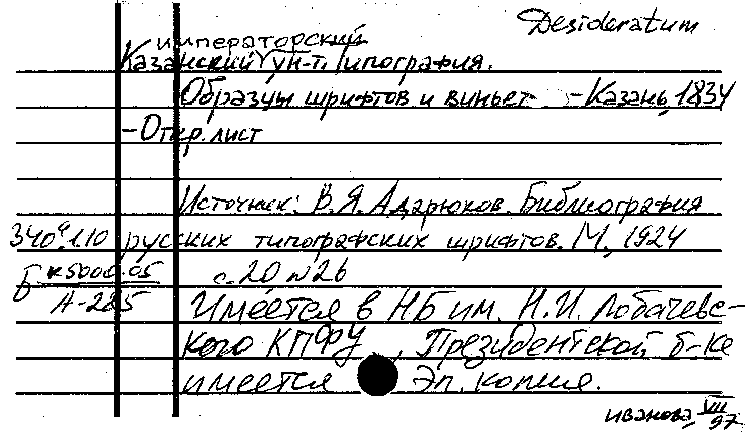 Desideratum
императорский
Казанский ун-т. Типография.
Образцы шрифтов и виньет - Казань, 1834
- Откр. лист
Источник: В.Я. Адарюков. Библиография
340а.1.10 русских типографских шрифтов. М., 1924
Б к5000.05 с. 20 N 26
А-285 Имеется в НБ им. Н.И. Лобачевс-
кого КПФУ, Президентской б-ке
имеется Эл. копия.
иванова VIII
97